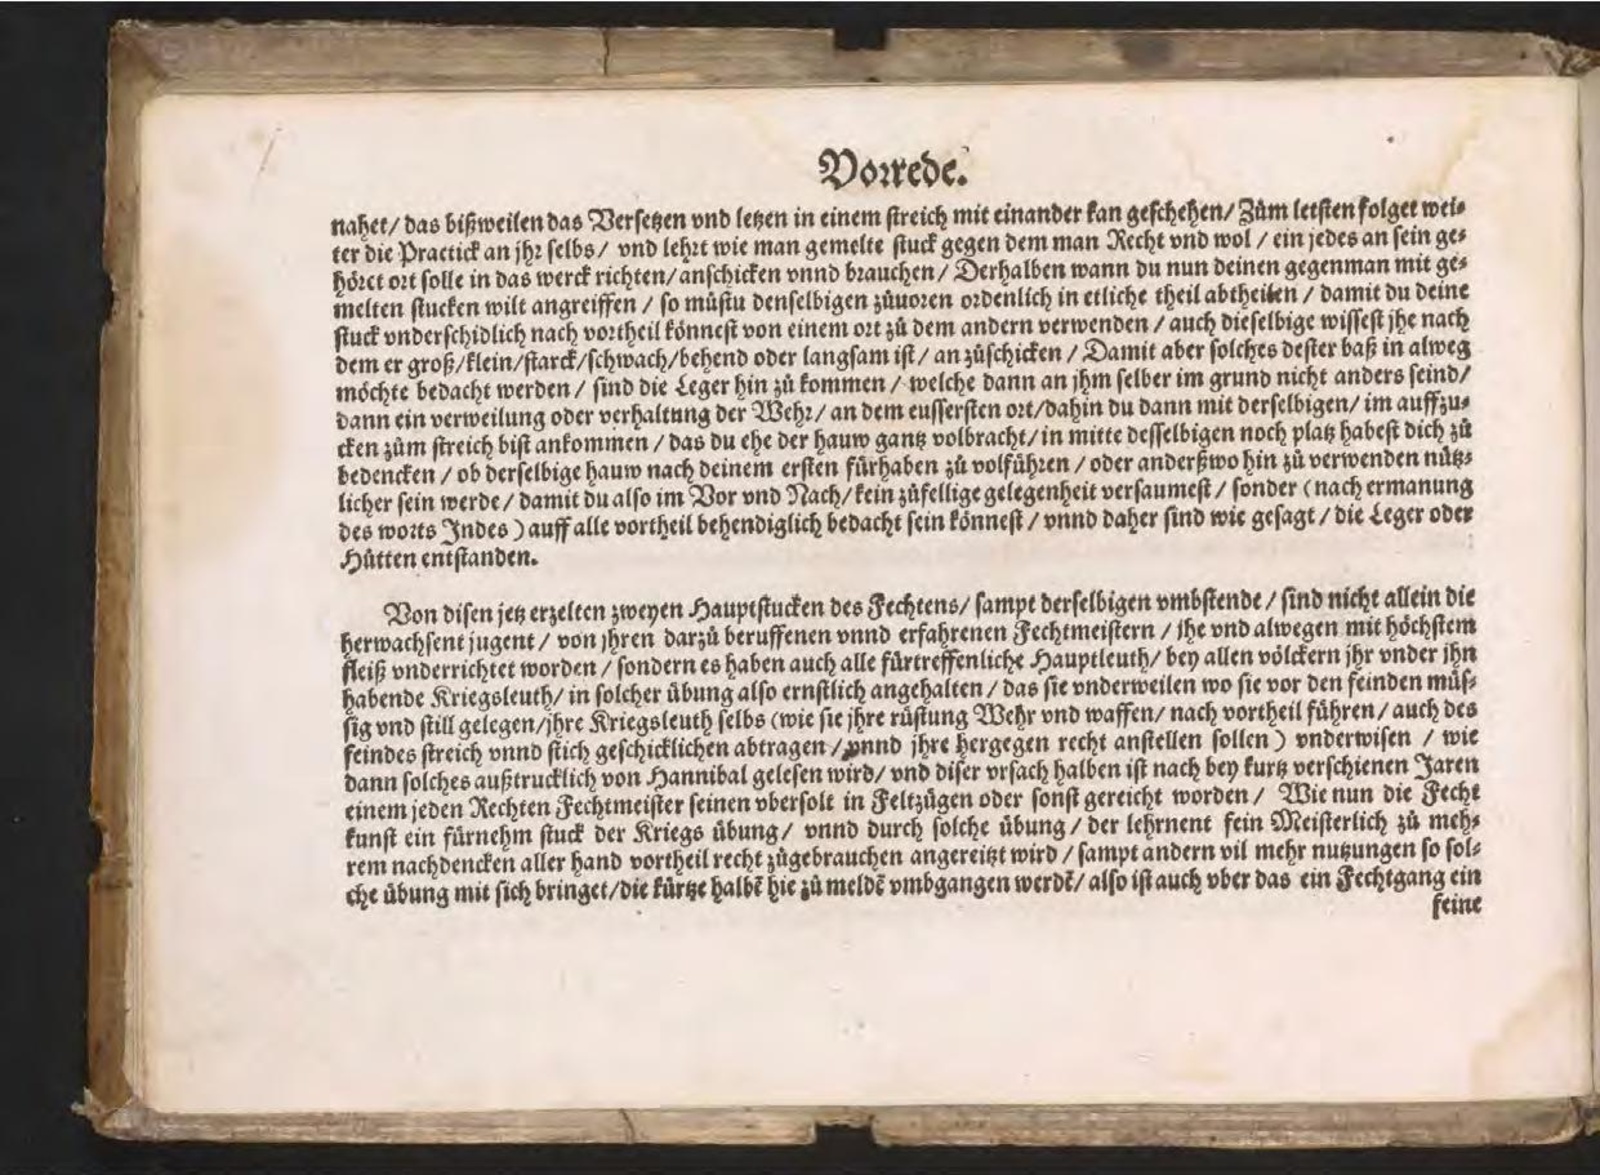 Vorrede.
nahet/ das bißweilen das Versetzen vnd letzen in einem streich mit einander kan geschehen/ Zům letsten folget wei⸗
ter die Practick an jhr selbs/ vnd lehrt wie man gemelte stuck gegen dem man Recht vnd wol / ein jedes an sein ge⸗
höret ort solle in das werck richten/ anschicken vnnd brauchen/ Derhalben wann du nun deinen gegenman mit ge⸗
melten stucken wilt angreiffen / so můstu denselbigen zůuoren ordenlich in etliche theil abtheilen / damit du deine
stuck vnderschidlich nach vortheil könnest von einem ort zů dem andern verwenden / auch dieselbige wissest jhe nach
dem er groß/klein/starck/schwach/behend oder langsam ist / an zůschicken / Damit aber solches dester baß in alweg
möchte bedacht werden / sind die Leger hin zů kommen / welche dann an jhm selber im grund nicht anders seind/
dann ein verweilung oder verhaltung der Wehr/ an dem eussersten ort/dahin du dann mit derselbigen/ im auffzu⸗
cken zům streich bist ankommen / das du ehe der hauw gantz volbracht/ in mitte desselbigen noch platz habest dich zů
bedencken / ob derselbige hauw nach deinem ersten fürhaben zů volführen / oder anderßwo hin zů verwenden nütz⸗
licher sein werde/ damit du also im Vor vnd Nach/ kein zůfellige gelegenheit versaumest / sonder (nach ermanung
des worts Indes) auff alle vortheil behendiglich bedacht sein könnest / vnnd daher sind wie gesagt / die Leger oder
Hůtten entstanden.
Von disen jetz erzelten zweyen Hauptstucken des Fechtens/ sampt derselbigen vmbstende / sind nicht allein die
herwachsent jugent / von jhren darzů beruffenen vnnd erfahrenen Fechtmeistern / jhe vnd alwegen mit höchstem
fleiß vnderrichtet worden / sondern es haben auch alle fürtreffenliche Hauptleuth/ bey allen völckern jhr vnder jhn
habende Kriegsleuth/ in solcher übung also ernstlich angehalten / das sie vnderweilen wo sie vor den feinden müs⸗
sig vnd still gelegen/jhre Kriegsleuth selbs (wie sie jhre rüstung Wehr vnd waffen/ nach vortheil führen / auch des
feindes streich vnnd stich geschicklichen abtragen / vnnd jhre hergegen recht anstellen sollen) vnderwisen / wie
dann solches außtrucklich von Hannibal gelesen wird/ vnd diser vrsach halben ist nach bey kurtz verschienen Jaren
einem jeden Rechten Fechtmeister seinen vbersolt in Feltzügen oder sonst gereicht worden / Wie nun die Fecht
kunst ein fürnehm stuck der Kriegs übung/ vnnd durch solche übung / der lehrnent fein Meisterlich zů meh⸗
rem nachdencken aller hand vortheil recht zůgebrauchen angereitzt wird / sampt andern vil mehr nutzungen so sol⸗
che übung mit sich bringet/die kürtze halbē hie zů meldē vmbgangen werdē/ also ist auch vber das ein Fechtgang ein
feine